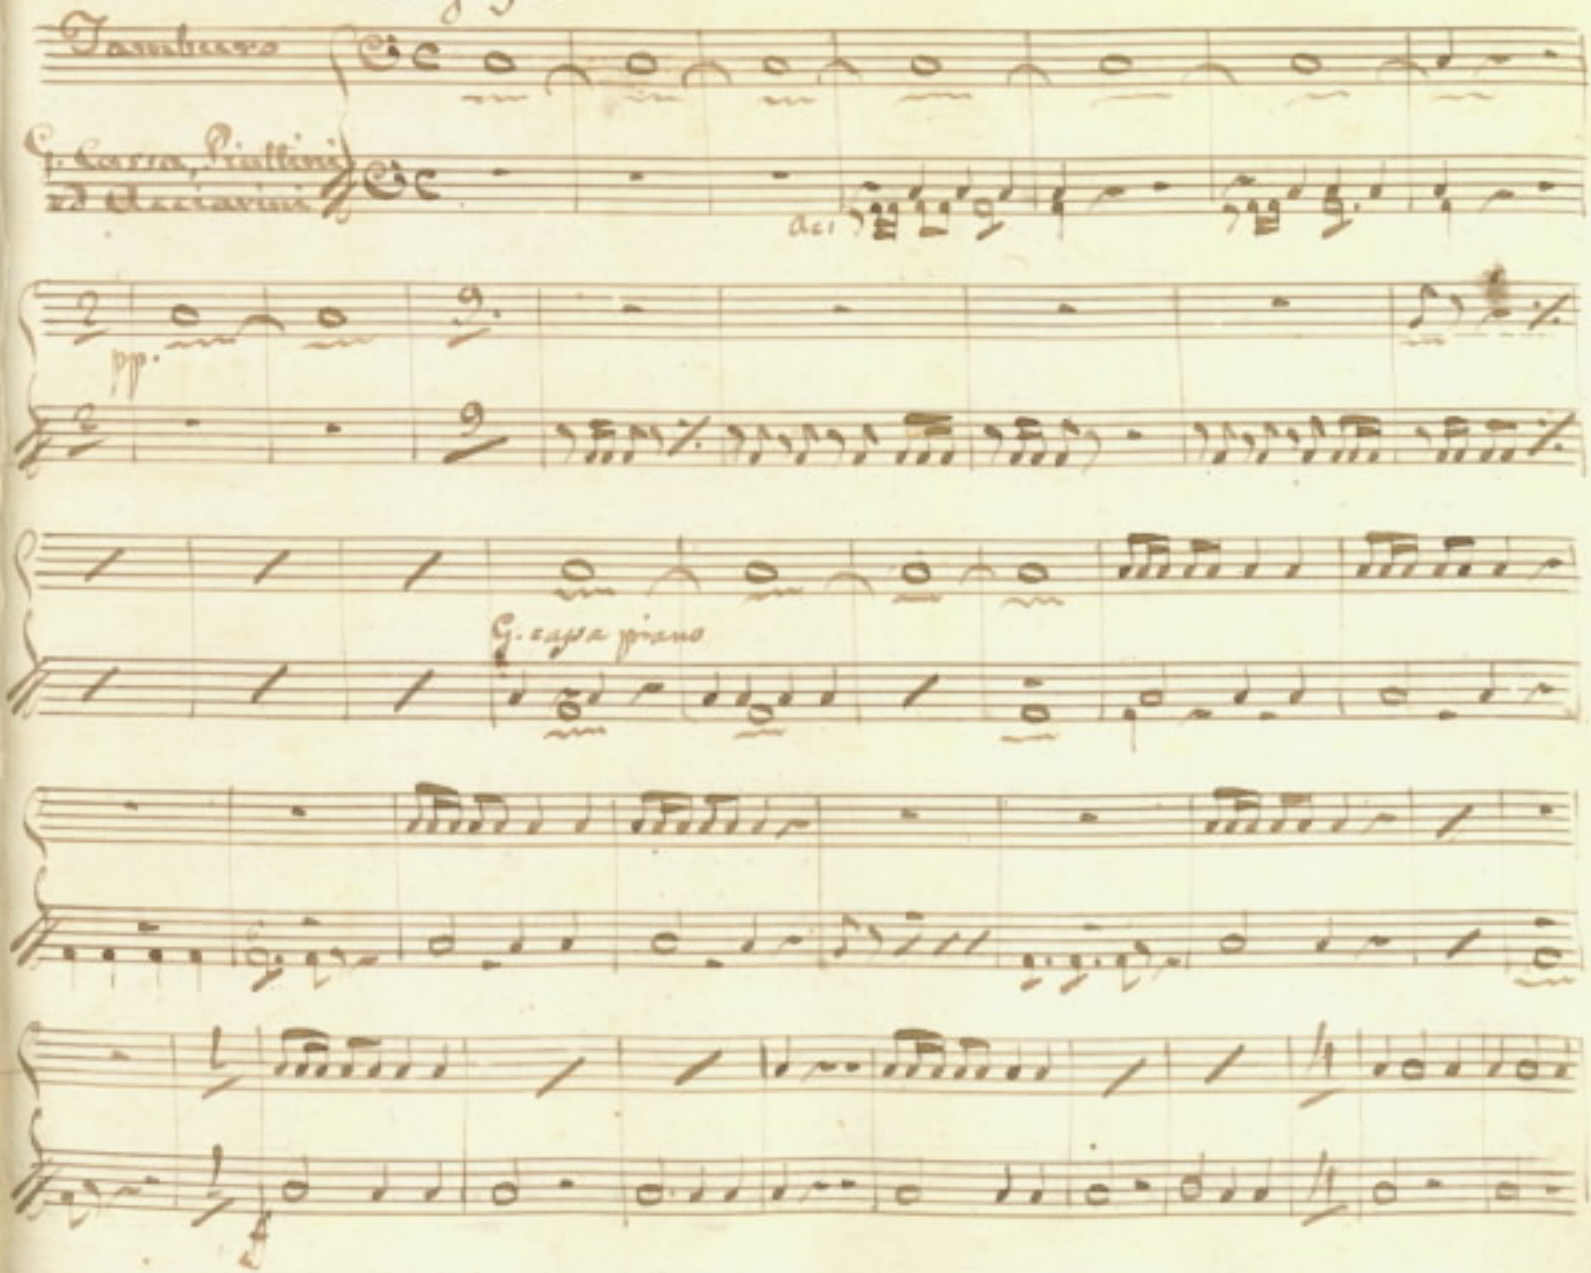 Tamburo
G. Cassa, Piattini
ed Acciarini
Aci
pp.
2
9.
2
9
G. cassa piano
1
4
1
4
f